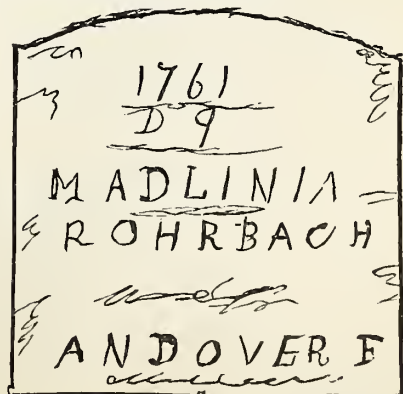 1761
D 9
MADLINIA
ROHRBACH
ANDOVER F